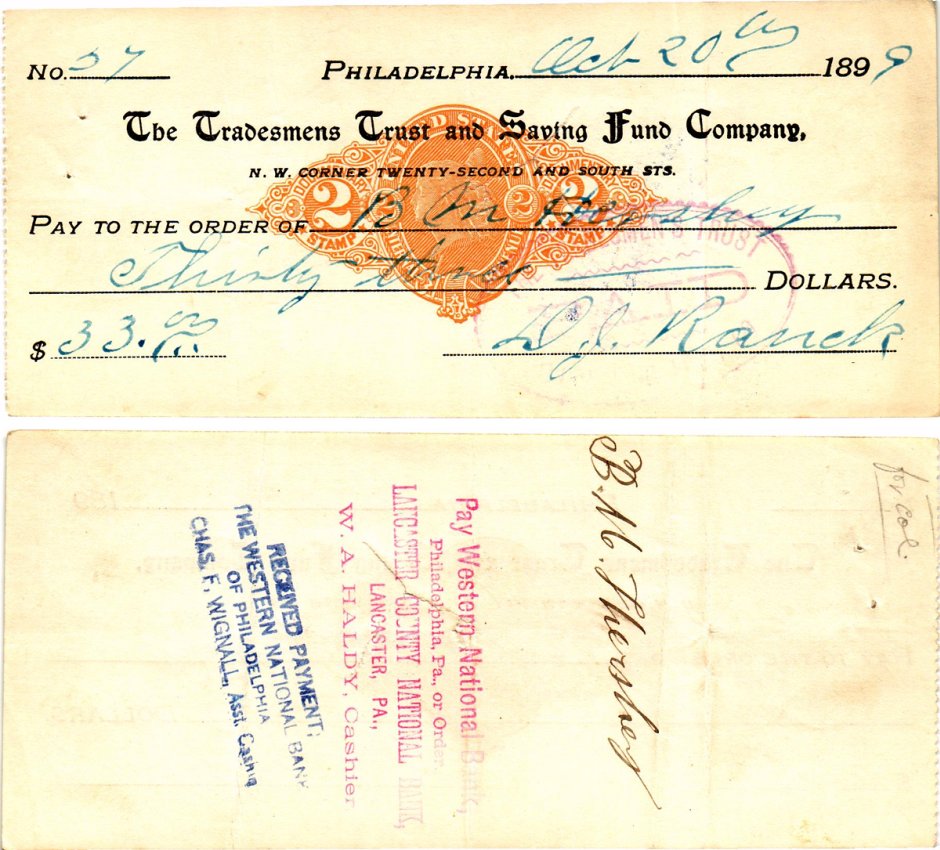 No. 37 Philadelphia, Oct 20th 1899
The Tradesmens Trust and Saving Fund Company,
N. W. CORNER TWENTY-SECOND AND SOUTH STS.
2 2 2
STAMP STAMP
PAY TO THE ORDER OF B M Hershey
TRUST
Thirty three DOLLARS.
$ 33.00 D. J. Ranck
for col.
B. M. Hershey
Pay Western National Bank,
Philadelphia, Pa., or Order.
LANCASTER COUNTY NATIONAL BANK,
LANCASTER, PA.,
W. A. HALDY, Cashier
RECEIVED PAYMENT,
THE WESTERN NATIONAL BANK
OF PHILADELPHIA
CHAS. F. WIGNALL, Asst. Cashier